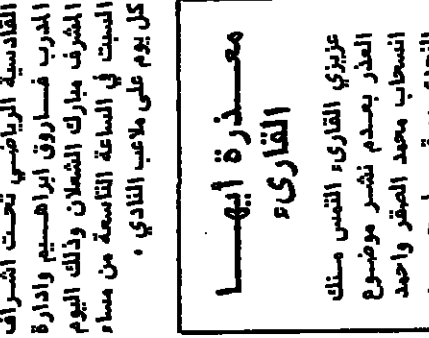 القادسية الرياضي تحت اشراف
المدرب فاروق ابراهيم وادارة
المشرف مبارك الشعلان وذلك اليوم
السبت في الساعة التاسعة من مساء
كل يوم على ملاعب النادي .
معذرة أيها
القارىء
عزيزي القارىء التمس منك
العذر بعدم نشر موضوع
انسحاب محمد الصقر واحمد